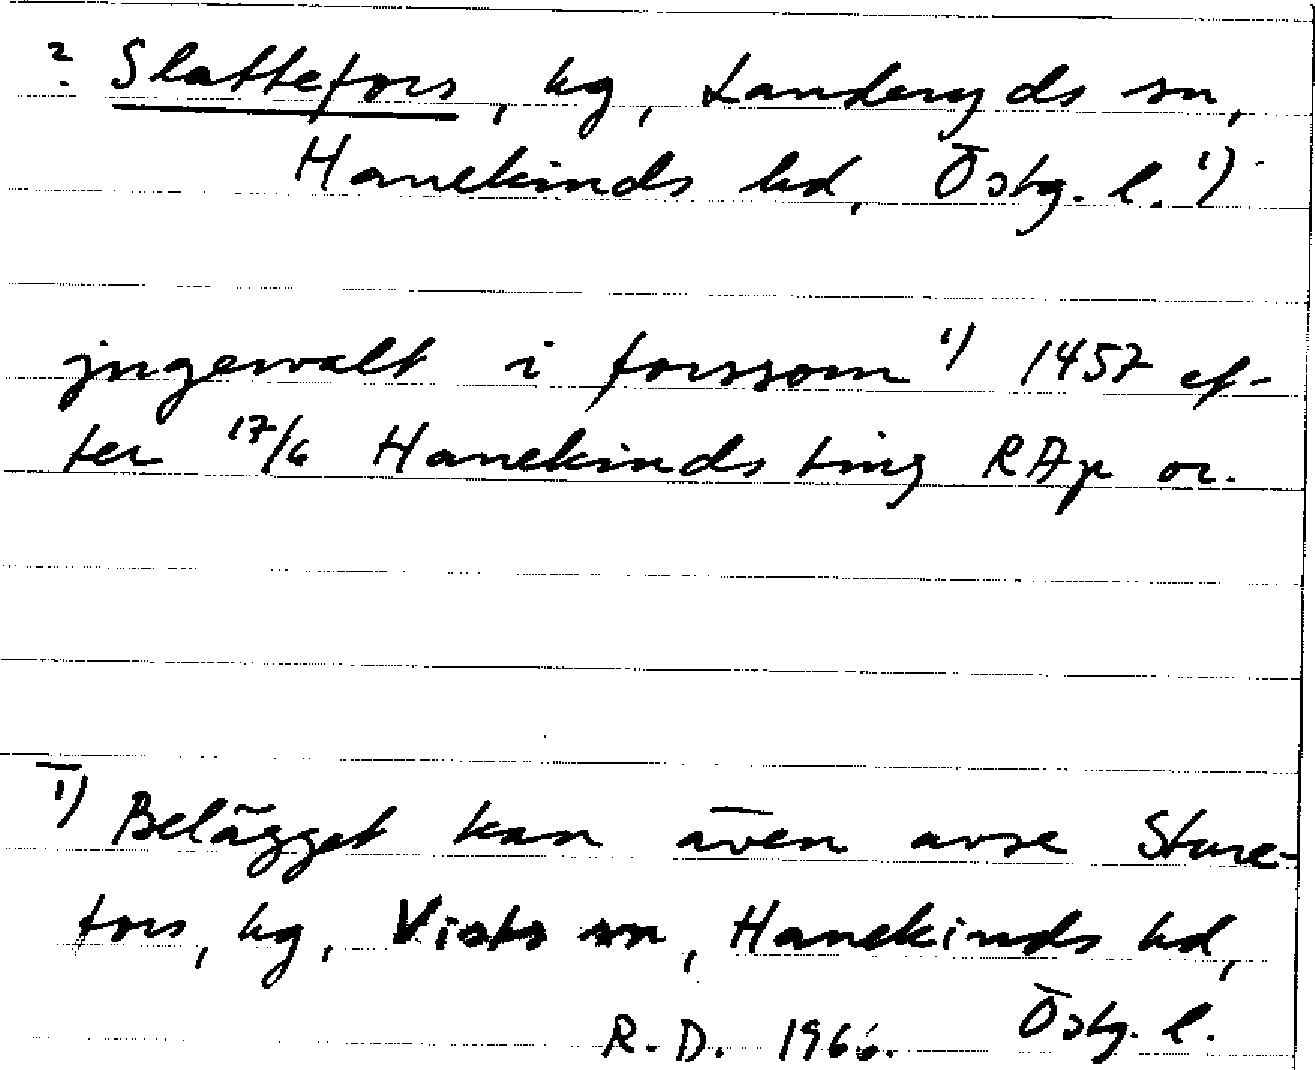 ? Slattefors, hg, Landeryds sn,
Hanekinds hd, Östg. l. 1)
jngewalt i forssom 1) 1457 ef-
ter 17/6 Hanekinds ting RAp or.
1) Belägget kan även avse Sture-
fors, hg, Vists sn, Hanekinds hd,
Östg. l.
R.D. 1966.